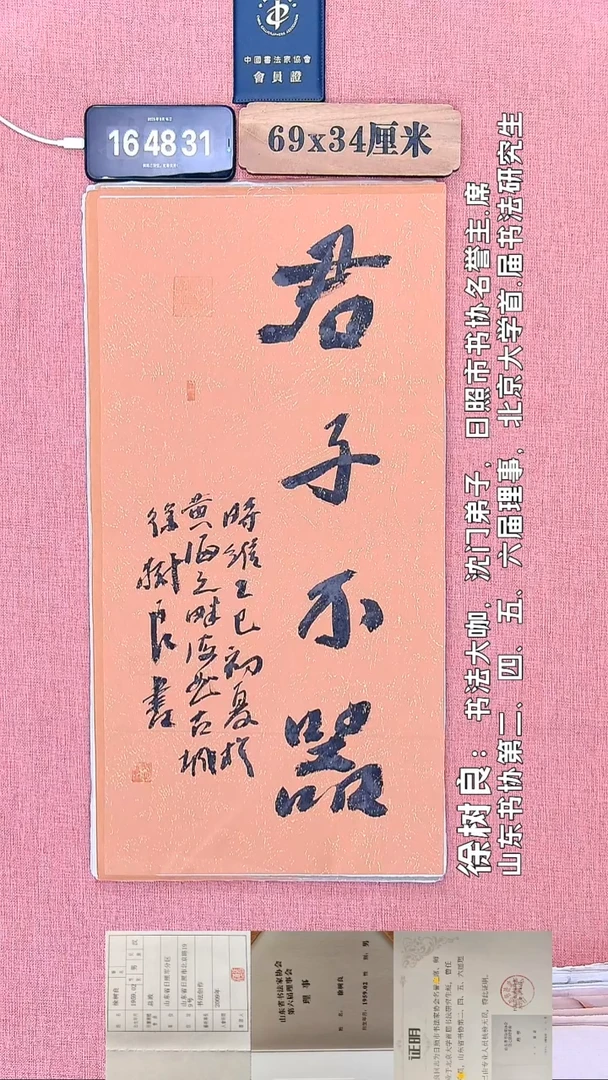 中國書法家協會
會員證
16 48 31
69x34厘米
君子不器
時維乙巳初夏於
黄海之畔海曲古城
徐樹良書
徐树良：书法大咖，沈门弟子，日照市书协名誉主.席
山东书协第二、四、五、六届理事，北京大学首.届书法研究生
山东省书法家协会
第六届理事会
理事
徐树良
1959.02
男
证明